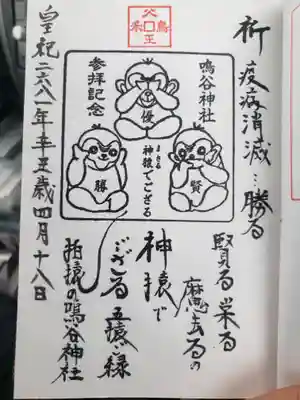 祈 疫病消滅
勝る
賢る 栄る
魔去るの
神猿で
ござる 五猿ご縁
拍猿の鳴谷神社
皇紀二六八一年辛丑歳四月十八日
鳴谷神社
まさる
神猿でござる
参拝記念
優
賢
勝